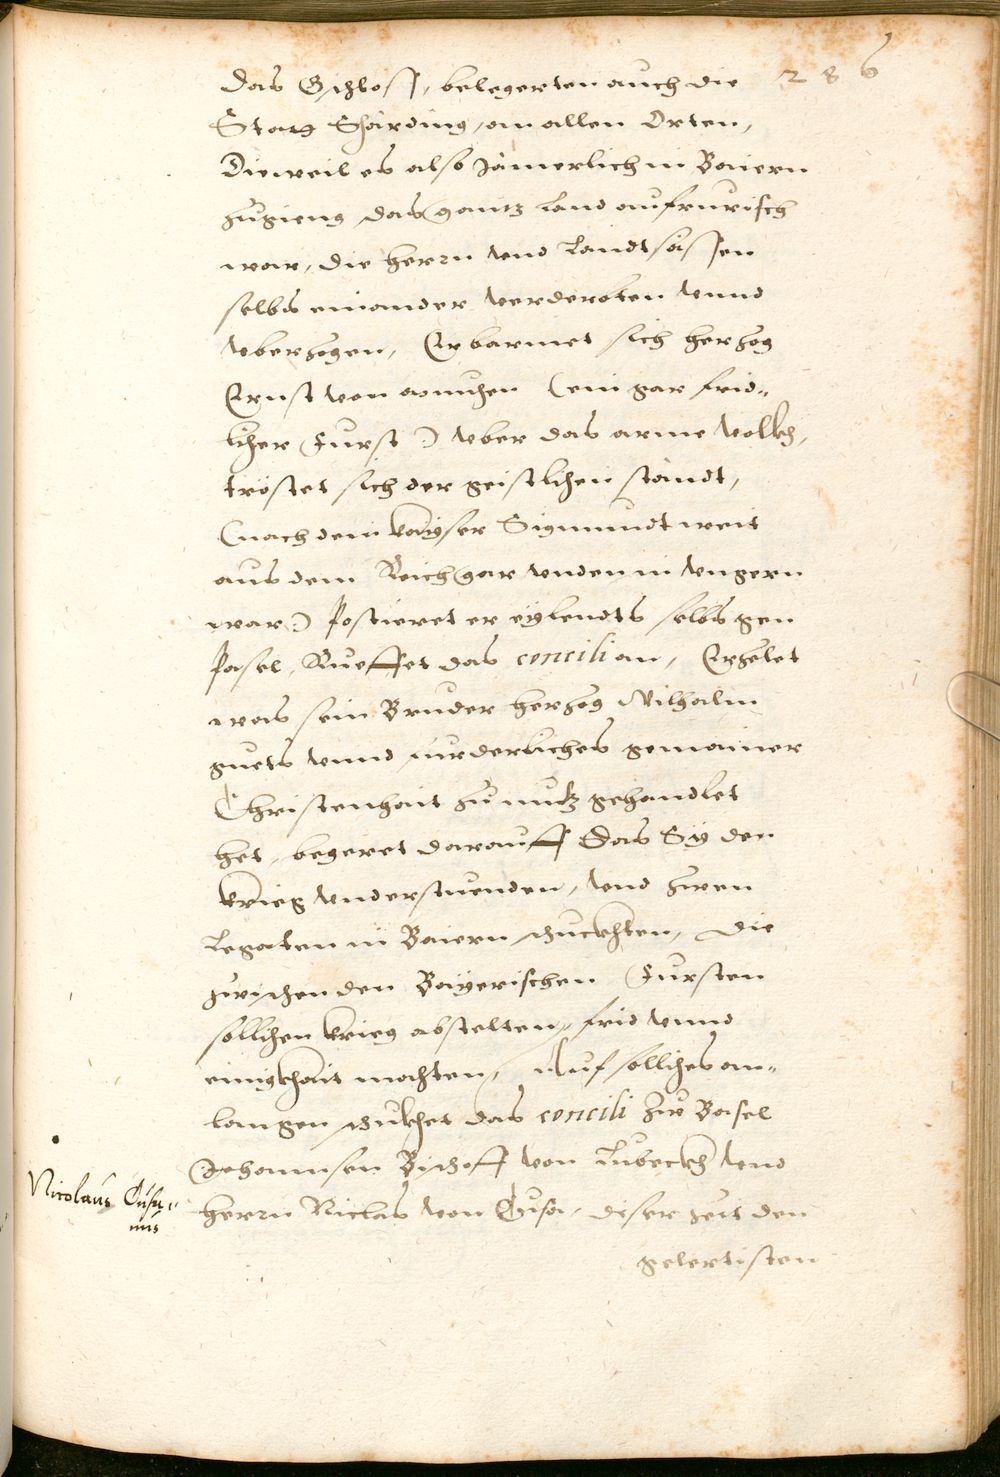 286
das Schloss, belegerten auch die
Stat Schärding, an allen Orten,
Dieweil es also Jämerlich in Baiern
zugieng das gantz land aufruerisch
war, die herrn vnd Landtsässen
selbs einander verderbten vnnd
vberzogen, Erbarmet sich herzog
Ernst von munchen (ein gar frid„
licher Furst) vber das arme volkh,
tröstet sich der geistlichen ständt,
(nach dem kayser Sigmundt weit
aus dem Reich gar vnden in vngern
war) Postieret er eylendts selbs gen
Pasel, Rueffet das concili an, Erzelet
was sein Bruder herzog Wilhalm
guets vnnd furderliches gemainer
Christenhait zu nutz gehandlet
het, begeret darauff das Sy den
krieg vnderstuenden, vnd zwen
Legaten in Baiern schickhten, die
zwischen den Bayerischen Fursten
sollichen krieg abstelten, frid vnnd
einigkhait machten, Auf solliches an„
langen schikhet das concili zu Basel
Johannsen Bischoff von Lubeckh vnd
Nicolaus Cusa„
nus
herrn Niclas von Cusa, diser zeit den
gelertisten